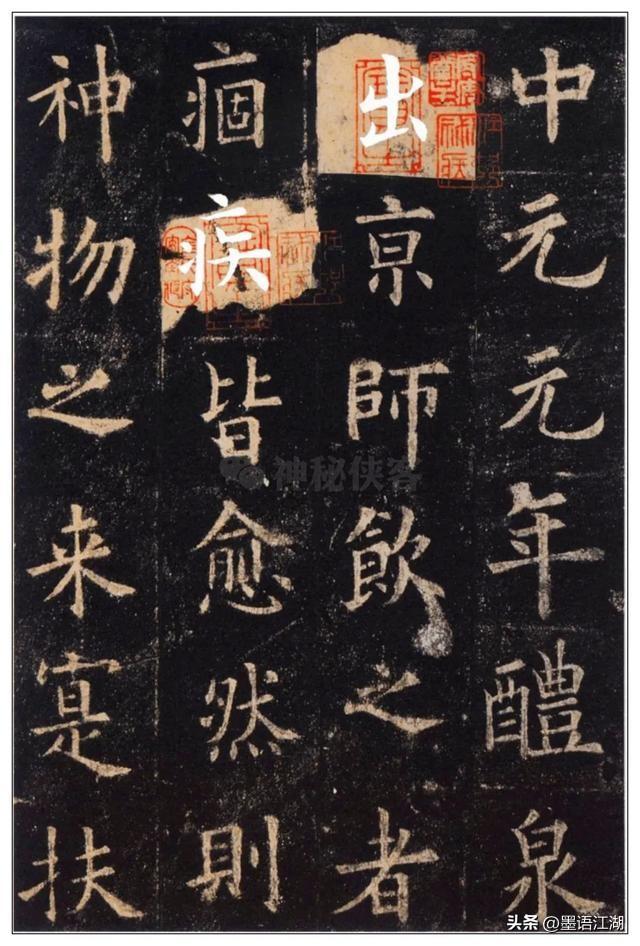 中元元年醴泉
出京師飲之者
痼疾皆愈然則
神物之来寔扶
神秘侠客
头条 @墨语江湖